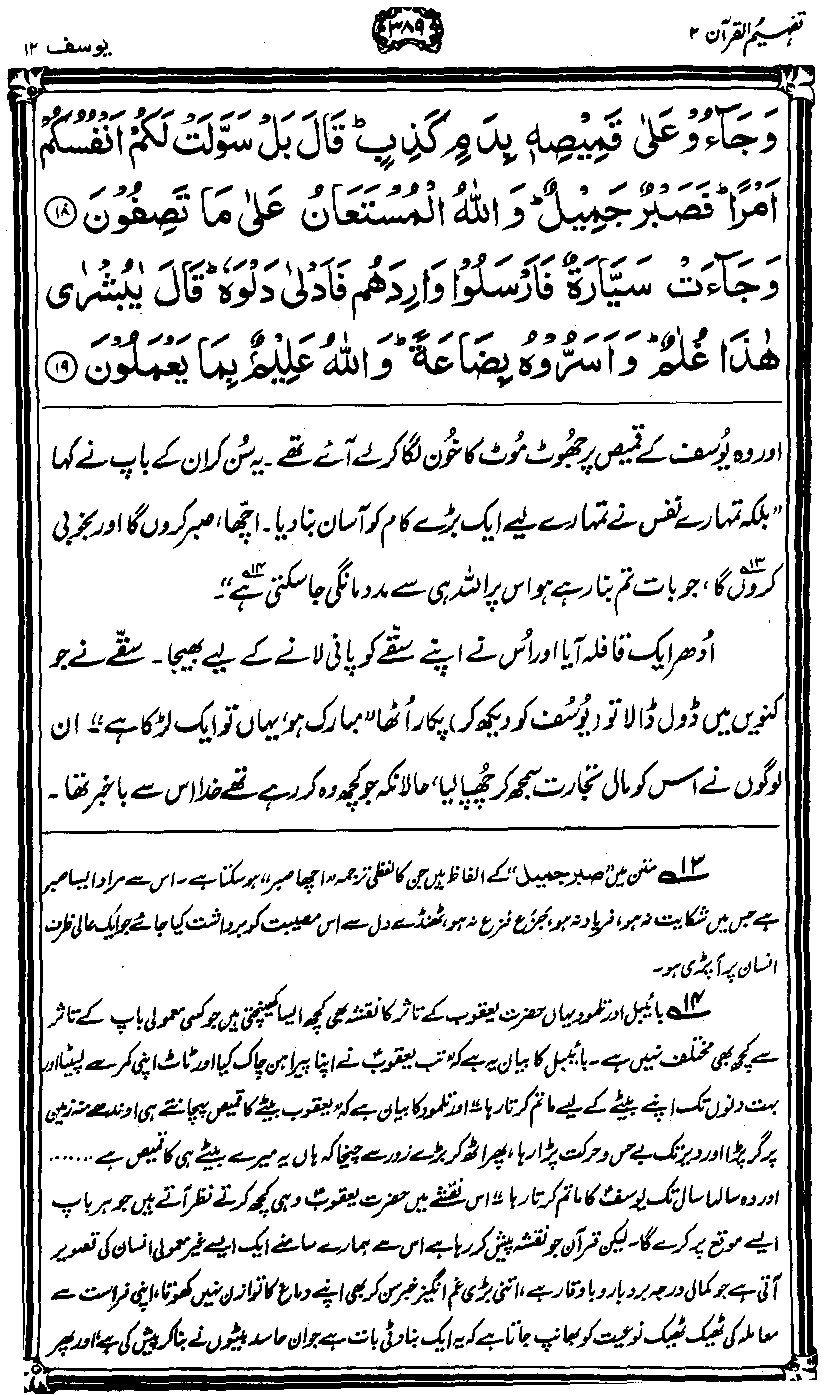 تفہیم القرآن ۲
۳۸۹
یوسف ۱۲
وَجَآءُوْ عَلٰی قَمِیْصِهٖ بِدَمٍ كَذِبٍ ؕ قَالَ بَلْ سَوَّلَتْ لَكُمْ اَنْفُسُكُمْ
اَمْرًا ؕ فَصَبْرٌ جَمِیْلٌ ؕ وَاللّٰهُ الْمُسْتَعَانُ عَلٰی مَا تَصِفُوْنَ ﴿۱۸﴾
وَجَآءَتْ سَیَّارَةٌ فَاَرْسَلُوْا وَارِدَهُمْ فَاَدْلٰی دَلْوَهٗ ؕ قَالَ یٰبُشْرٰی
هٰذَا غُلٰمٌ ؕ وَاَسَرُّوْهُ بِضَاعَةً ؕ وَاللّٰهُ عَلِیْمٌۢ بِمَا یَعْمَلُوْنَ ﴿۱۹﴾
اور وہ یُوسف کے قمیص پر جھُوٹ مُوٹ کا خُون لگا کر لے آئے تھے۔ یہ سُن کر ان کے باپ نے کہا
”بلکہ تمہارے نفس نے تمہارے لیے ایک بڑے کام کو آسان بنا دیا۔ اچھّا، صبر کروں گا اور بخوبی
کروں گا،۱۳ جو بات تم بنا رہے ہو اس پر اللہ ہی سے مدد مانگی جا سکتی ہے۱۴“۔
اُدھر ایک قافلہ آیا اور اُس نے اپنے سقّے کو پانی لانے کے لیے بھیجا۔ سقّے نے جو
کنویں میں ڈول ڈالا تو (یُوسف کو دیکھ کر) پکار اُٹھا ”مبارک ہو، یہاں تو ایک لڑکا ہے“۔ ان
لوگوں نے اس کو مالِ تجارت سمجھ کر چھُپا لیا، حالانکہ جو کچھ وہ کر رہے تھے خدا اس سے باخبر تھا۔
۱۳ متن میں ”صبرِ جمیل“ کے الفاظ ہیں جن کا لفظی ترجمہ ”اچھا صبر“ ہو سکتا ہے۔ اس سے مراد ایسا صبر
ہے جس میں شکایت نہ ہو، فریاد نہ ہو، جَزَع فَزَع نہ ہو، ٹھنڈے دل سے اس مصیبت کو برداشت کیا جائے جو ایک عالی ظرف
انسان پر آ پڑی ہو۔
۱۴ بائیبل اور تلمود یہاں حضرت یعقوب کے تاثر کا نقشہ بھی کچھ ایسا کھینچتی ہیں جو کسی معمولی باپ کے تاثر
سے کچھ بھی مختلف نہیں ہے۔ بائیبل کا بیان یہ ہے کہ ”تب یعقوبؑ نے اپنا پیراہن چاک کیا اور ٹاٹ اپنی کمر سے لپیٹا اور
بہت دنوں تک اپنے بیٹے کے لیے ماتم کرتا رہا“۔ اور تلمود کا بیان ہے کہ ”یعقوب بیٹے کا قمیص پہچانتے ہی اوندھے منہ زمین
پر گر پڑا اور دیر تک بے حس و حرکت پڑا رہا، پھر اٹھ کر بڑے زور سے چیخا کہ ہاں یہ میرے بیٹے ہی کا قمیص ہے .......
اور وہ سالہا سال تک یوسفؑ کا ماتم کرتا رہا“۔ اس نقشے میں حضرت یعقوبؑ وہی کچھ کرتے نظر آتے ہیں جو ہر باپ
ایسے موقع پر کرے گا۔ لیکن قرآن جو نقشہ پیش کر رہا ہے اس سے ہمارے سامنے ایک ایسے غیر معمولی انسان کی تصویر
آتی ہے جو کمال درجہ بردبار و باوقار ہے، اتنی بڑی غم انگیز خبر سن کر بھی اپنے دماغ کا توازن نہیں کھوتا، اپنی فراست سے
معاملہ کی ٹھیک ٹھیک نوعیت کو بھانپ جاتا ہے کہ یہ ایک بناوٹی بات ہے جو ان حاسد بیٹوں نے بنا کر پیش کی ہے، اور پھر